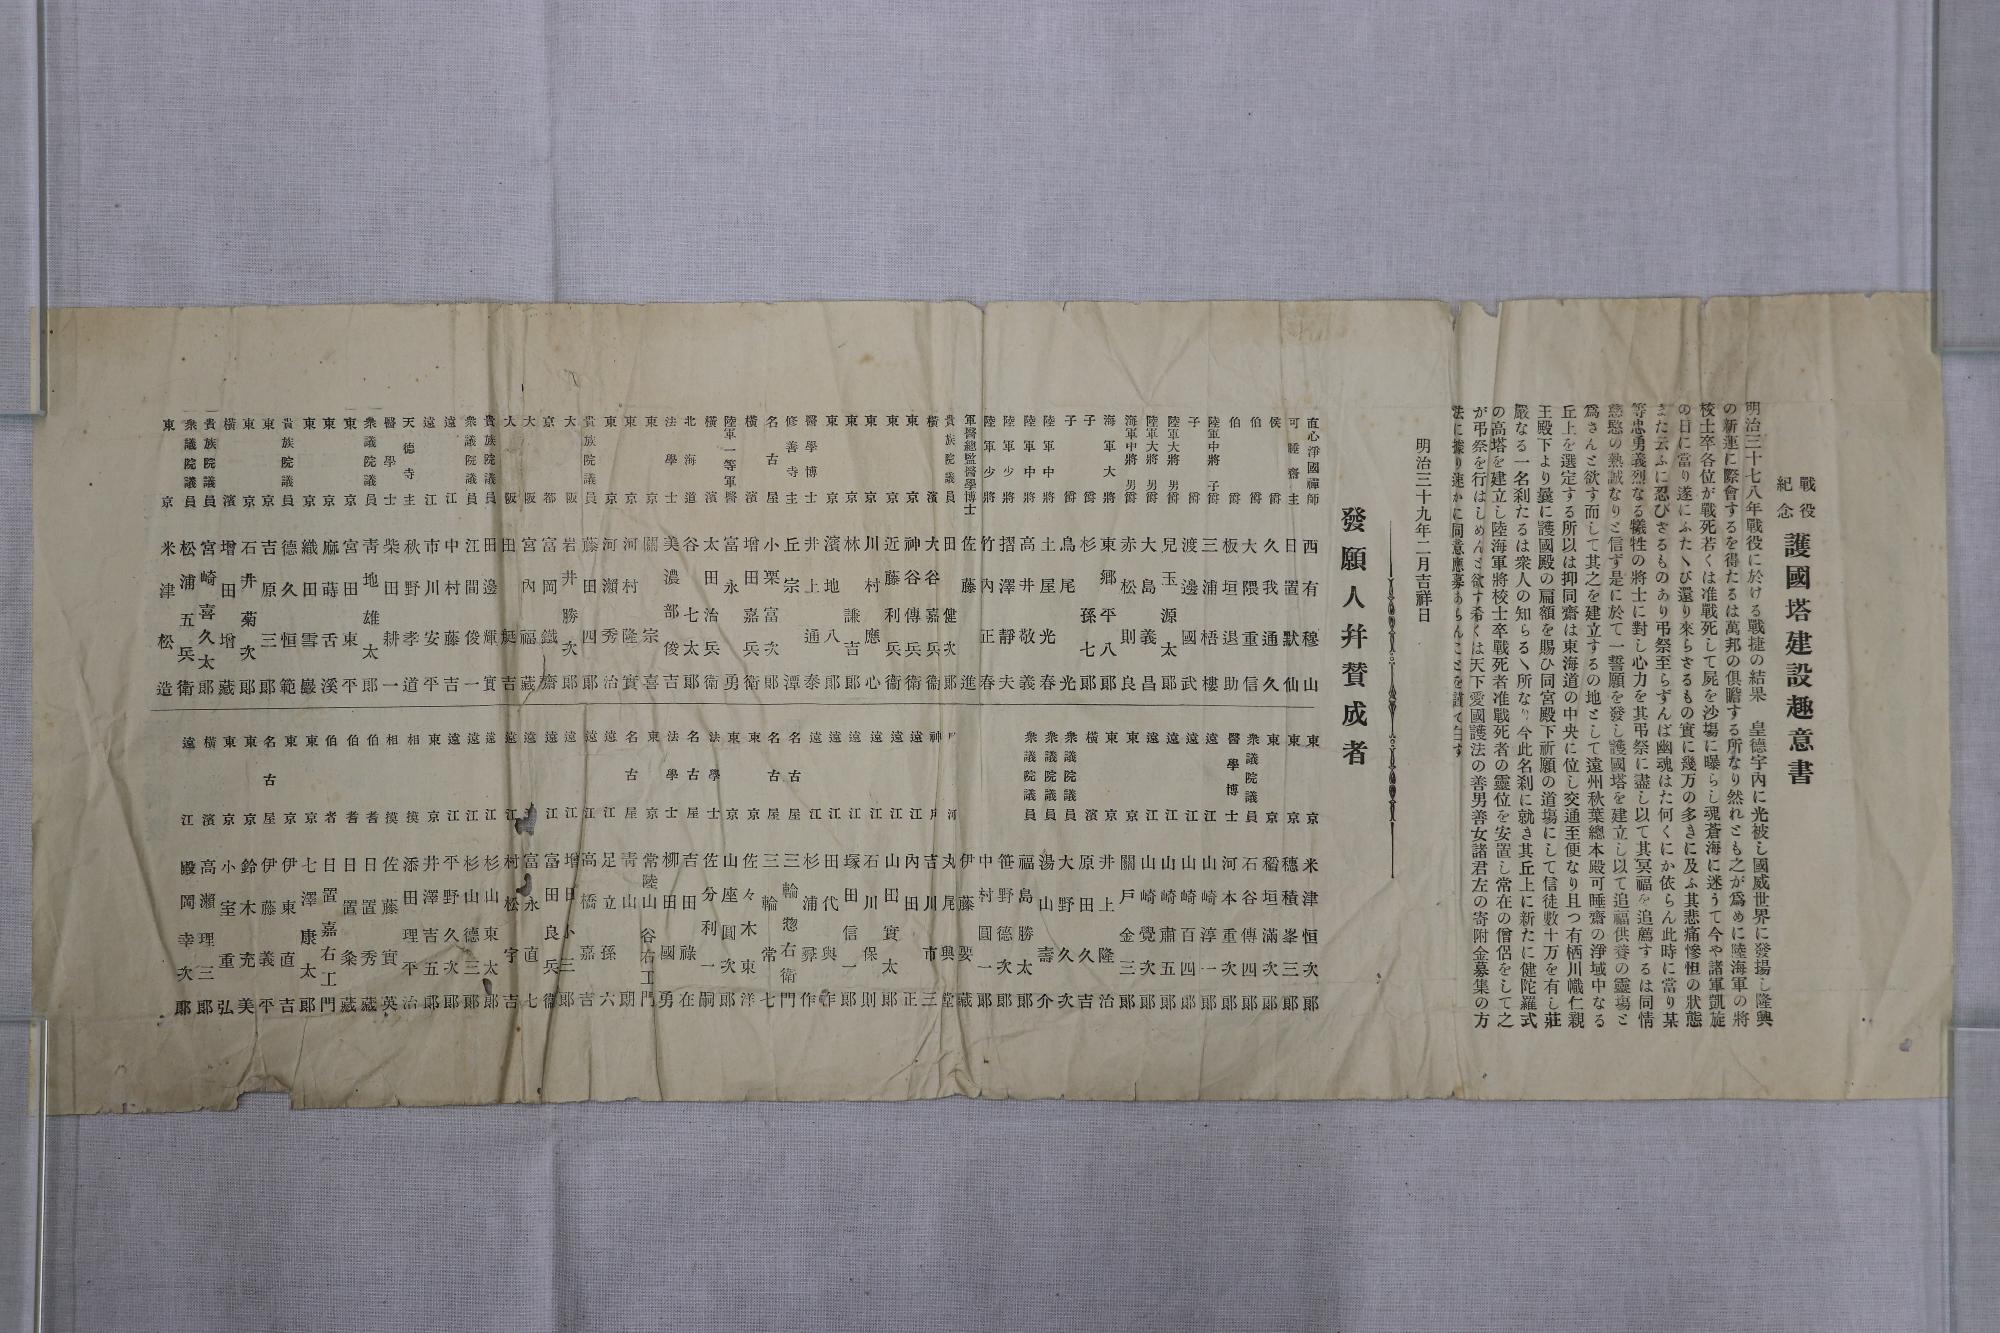 戰役紀念 護國塔建設趣意書
明治三十七八年戰役に於ける戰捷の結果 皇德宇內に光被し國威世界に發揚し隆興
の新運に際會するを得たるは萬邦の俱瞻する所なり然れとも之が爲めに陸海軍の將
校士卒各位が戰死若くは准戰死して屍を沙塲に曝らし魂蒼海に迷うて今や諸軍凱旋
の日に當り遂にふたゝび還り來らさるもの實に幾万の多きに及ふ其悲痛慘怛の狀態
また云ふに忍びさるものあり弔祭至らずんば幽魂はた何くにか依らん此時に當り某
等忠勇義烈なる犧牲の將士に對し心力を其弔祭に盡し以て其冥福を追薦するは同情
慈愍の熱誠なりと信ず是に於て一誓願を發し護國塔を建立し以て追福供養の靈塲と
爲さんと欲す而して其之を建立するの地として遠州秋葉總本殿可睡齋の淨域中なる
丘上を選定する所以は抑同齋は東海道の中央に位し交通至便なり且つ有栖川幟仁親
王殿下より曩に護國殿の扁額を賜ひ同宮殿下祈願の道塲にして信徒數十万を有し莊
嚴なる一名刹たるは衆人の知らるゝ所なり今此名刹に就き其丘上に新たに健陀羅式
の高塔を建立し陸海軍將校士卒戰死者准戰死者の靈位を安置し常在の僧侶をして之
が弔祭を行はしめんと欲す希くは天下愛國護法の善男善女諸君左の寄附金募集の方
法に據り速かに同意應募あらんことを謹て白す
明治三十九年二月吉祥日
發願人幷賛成者
直心淨國禪師 西有穆山
可睡齋主 日置默仙
侯爵 久我通久
伯爵 大隈重信
伯爵 板垣退助
陸軍中將子爵 三浦梧樓
子爵 渡邊國武
陸軍大將男爵 兒玉源太郞
陸軍大將男爵 大島義昌
海軍中將男爵 赤松則良
海軍大將 東鄕平八郞
子爵 杉孫七郞
子爵 鳥尾光
陸軍中將 土屋光春
陸軍中將 高井敬義
陸軍少將 摺澤靜夫
陸軍少將 竹內正春
軍醫總監醫學博士 佐藤進
貴族院議員 田健次郞
橫濱 大谷嘉兵衞
東京 神谷傳兵衞
東京 近藤利兵衞
東京 川村應心
東京 林謙吉郞
東京 濱地八郞
醫學博士 井上通泰
修善寺主 丘宗潭
名古屋 小栗富次郞
橫濱 增田嘉兵衞
陸軍一等軍醫 富永勇
橫濱 太田治兵衞
北海道 谷七太郞
法學士 美濃部俊吉
東京 關宗喜
東京 河村隆實
東京 河瀨秀治
貴族院議員 藤田四郞
大阪 岩井勝次郞
京都 富岡鐵齋
大阪 宮內福藏
大阪 田艇吉
貴族院議員 田邊輝實
衆議院議員 江間俊一
遠江 中村藤吉
遠江 市川安平
天德寺主 秋野孝道
醫學士 柴田耕一
衆議院議員 靑地雄太郞
東京 宮田東平
東京 麻蒔舌溪
東京 織田雪巖
貴族院議員 德久恒範
東京 吉原三郞
東京 石井菊次郞
橫濱 增田增藏
貴族院議員 宮崎喜久太郞
衆議院議員 松浦五兵衞
東京 米津松造
東京 米津恒次郞
東京 穗積峯三郞
東京 稻垣滿次郞
衆議院議員 石谷傳四郞
醫學博士 河本重次郞
遠江 山崎淳一郞
遠江 山崎百四郞
遠江 山崎肅五郞
遠江 山崎覺次郞
東京 關戶金三郞
東京 井上隆治
橫濱 原田久吉
衆議院議員 大野久次
衆議院議員 湯山壽介
衆議院議員 福島勝太郞
笹野德次郞
中村圓一郞
伊藤要藏
河 丸尾興堂
神戶 吉川市三
遠江 內田正
遠江 山田實太郞
遠江 石川保則
遠江 塚田信一郞
遠江 田代與作
遠江 杉浦彛作
名古屋 三輪惣右衛門
名古屋 三輪常七
東京 佐々木東洋
東京 山座圓次郞
法學士 佐分利一嗣
名古屋 吉田祿在
法學士 柳田國勇
東京 常陸山谷右エ門
名古屋 靑山朗
遠江 足立孫六
遠江 高橋嘉吉
遠江 增田小三郞
遠江 富田良兵衞
遠江 富永直七
遠江 村松宇吉
遠江 杉山東太郞
遠江 杉山德三郞
遠江 平野久次郞
東京 井澤吉五郞
相摸 添田理平治
相摸 佐藤實英
伯耆 日置秀藏
伯耆 日置粂藏
伯耆 日置嘉右エ門
東京 七澤康太郞
東京 伊東直吉
名古屋 伊藤義平
東京 鈴木充美
東京 小室重弘
橫濱 高瀨理三郞
遠江 殿岡幸次郞